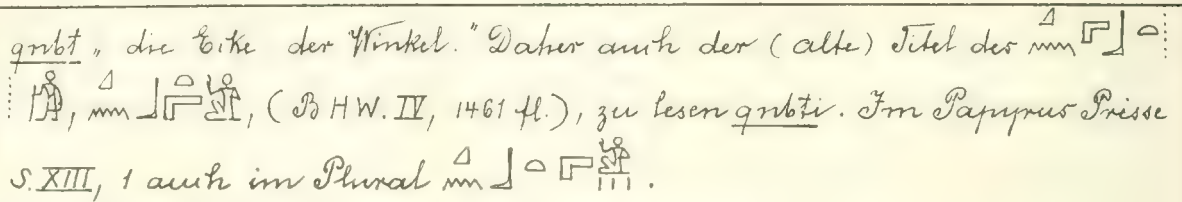 qnbt „ die Ecke der Winkel." Daher auch der (alte) Titel des
, , (B HW. IV, 1461 fl.), zu lesen qnbti. Im Papyrus Prisse
S. XIII, 1 auch im Plural .